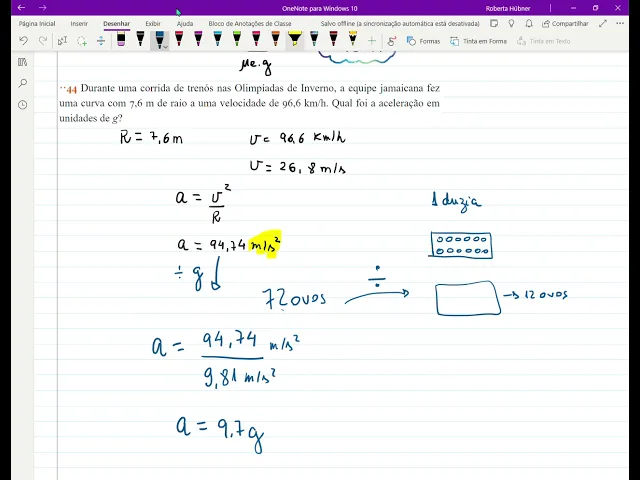 OneNote para Windows 10
Roberta Hübner
Página Inicial Inserir Desenhar Exibir Ajuda Bloco de Anotações de Classe Salvo offline (a sincronização automática está desativada) Compartilhar
Formas Tinta em Forma Tinta em Texto
μe.g
··44 Durante uma corrida de trenós nas Olimpíadas de Inverno, a equipe jamaicana fez
uma curva com 7,6 m de raio a uma velocidade de 96,6 km/h. Qual foi a aceleração em
unidades de g?
R = 7,6 m v = 96,6 km/h
v = 26,8 m/s
a = v²/R
1 duzia
a = 94,74 m/s²
÷ g
72 ovos ÷ → 12 ovos
a = 94,74 m/s²
9,81 m/s²
a = 9,7 g